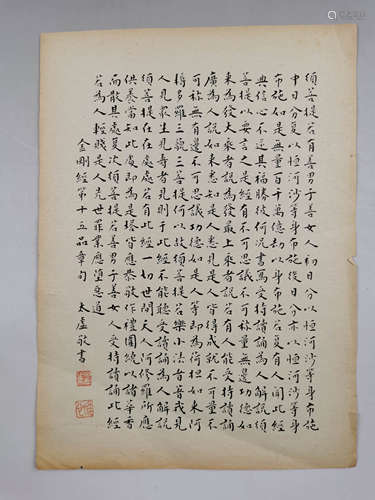 須菩提若有善男子善女人初日分以恒河沙等身布施
中日分复以恒河沙等身布施後日分亦以恒河沙等身
布施如是無量百千萬億劫以身布施若复有人聞此經
典信心不逆其福勝彼何況書寫受持讀誦為人解説須
菩提以要言之是經有不可思議不可稱量無邊功德如
來為發大乘者説為發最上乘者説若有人能受持讀誦
廣為人説如來悉知是人悉見是人皆得成就不可量不
可称無有邊不可思議功德如是人等即為荷担如來阿
耨多羅三藐三菩提何以故須菩提若樂小法者著我見
人見眾生見壽者見則於此經不能聽受讀誦為人解説
須菩提在在處處若有此經一切世間天人阿修羅所應
供養當知此處即為是塔皆應恭敬作禮圍繞以諸華香
而散其處复次須菩提若善男子善女人受持讀誦此經
若為人輕賤是人先世罪業應墮惡道
金剛經第十五品章句 太虛敬書